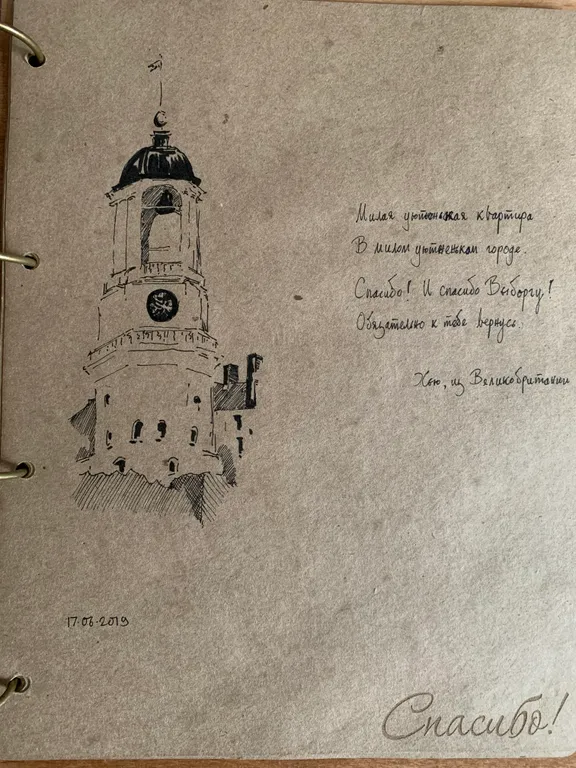 Милая уютненькая квартира
В милом уютненьком городе.
Спасибо! И спасибо Выборгу!
Обязательно к тебе вернусь.
Хью, из Великобритании
17.06.2019
Спасибо!